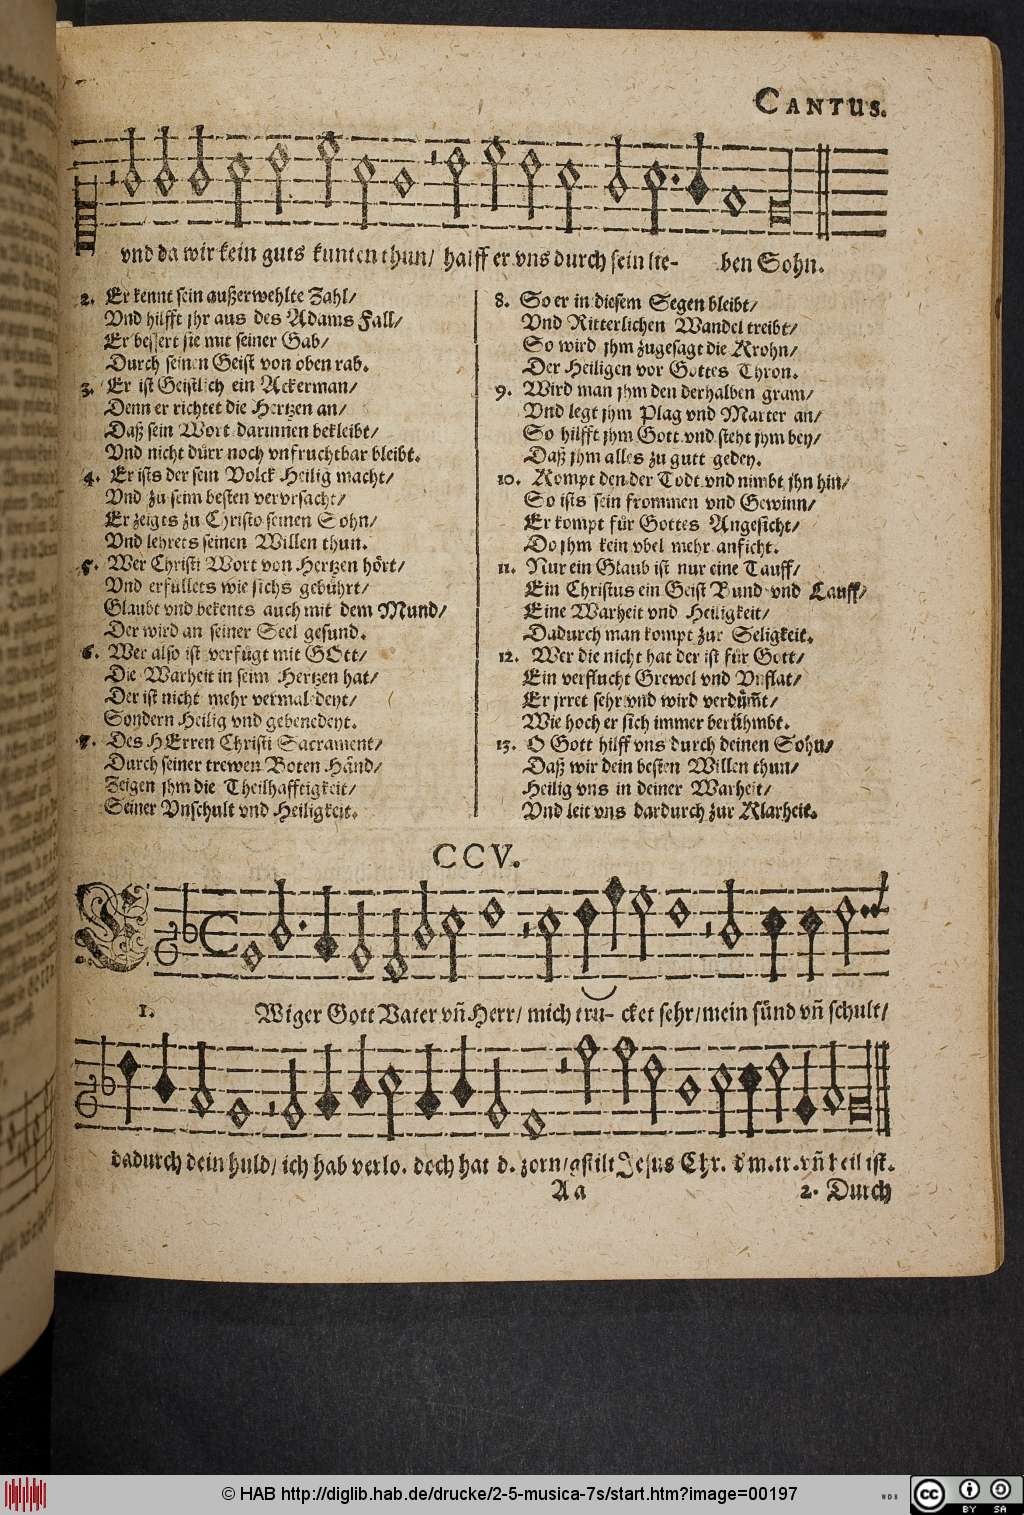 CANTUS.
vnd da wir kein guts kunten thun/ halff er vns durch sein lie- ben Sohn.
2. Er kennt sein außerwehlte Zahl/
Vnd hilfft jhr aus des Adams Fall/
Er bessert sie mit seiner Gab/
Durch seinen Geist von oben rab.
3. Er ist Geistlich ein Ackerman/
Denn er richtet die Hertzen an/
Daß sein Wort darinnen bekleibt/
Vnd nicht dürr noch vnfruchtbar bleibt.
4. Er ists der sein Volck Heilig macht/
Vnd zu seim besten vervrsacht/
Er zeigts zu Christo seinen Sohn/
Vnd lehrets seinen Willen thun.
5. Wer Christi Wort von Hertzen hört/
Vnd erfüllets wie sichs gebührt/
Glaubt vnd bekents auch mit dem Mund/
Der wird an seiner Seel gesund.
6. Wer also ist verfügt mit GOtt/
Die Warheit in seim Hertzen hat/
Der ist nicht mehr vermaldeyt/
Sondern Heilig vnd gebenedeyt.
7. Des HErren Christi Sacrament/
Durch seiner trewen Boten Händ/
Zeigen jhm die Theilhafftigkeit/
Seiner Vnschult vnd Heiligkeit.
8. So er in diesem Segen bleibt/
Vnd Ritterlichen Wandel treibt/
So wird jhm zugesagt die Krohn/
Der Heiligen vor Gottes Thron.
9. Wird man jhm den derhalben gram/
Vnd legt jhm Plag vnd Marter an/
So hilfft jhm Gott vnd steht jhm bey/
Daß jhm alles zu gutt gedey.
10. Kompt den der Todt vnd nimbt jhn hin/
So ists sein frommen vnd Gewinn/
Er kompt für Gottes Angesicht/
Do jhm kein vbel mehr anficht.
11. Nur ein Glaub ist nur eine Tauff/
Ein Christus ein Geist Bund vnd Lauff/
Eine Warheit vnd Heiligkeit/
Dadurch man kompt zur Seligkeit.
12. Wer die nicht hat der ist für Gott/
Ein verflucht Grewel vnd Vnflat/
Er jrret sehr vnd wird verdüm̃t/
Wie hoch er sich immer berühmbt.
13. O Gott hilff vns durch deinen Sohn/
Daß wir dein besten Willen thun/
Heilig vns in deiner Warheit/
Vnd leit vns dardurch zur Klarheit.
CCV.
1. EWiger Gott Vater vñ Herr/ mich tru- cket sehr/ mein sünd vñ schult/
dadurch dein huld/ ich hab verlo. doch hat d. zorn/ gstilt Jesus Chr. d m. tr. vñ heil ist.
Aa
2. Durch
© HAB http://diglib.hab.de/drucke/2-5-musica-7s/start.htm?image=00197
WDB
cc BY SA